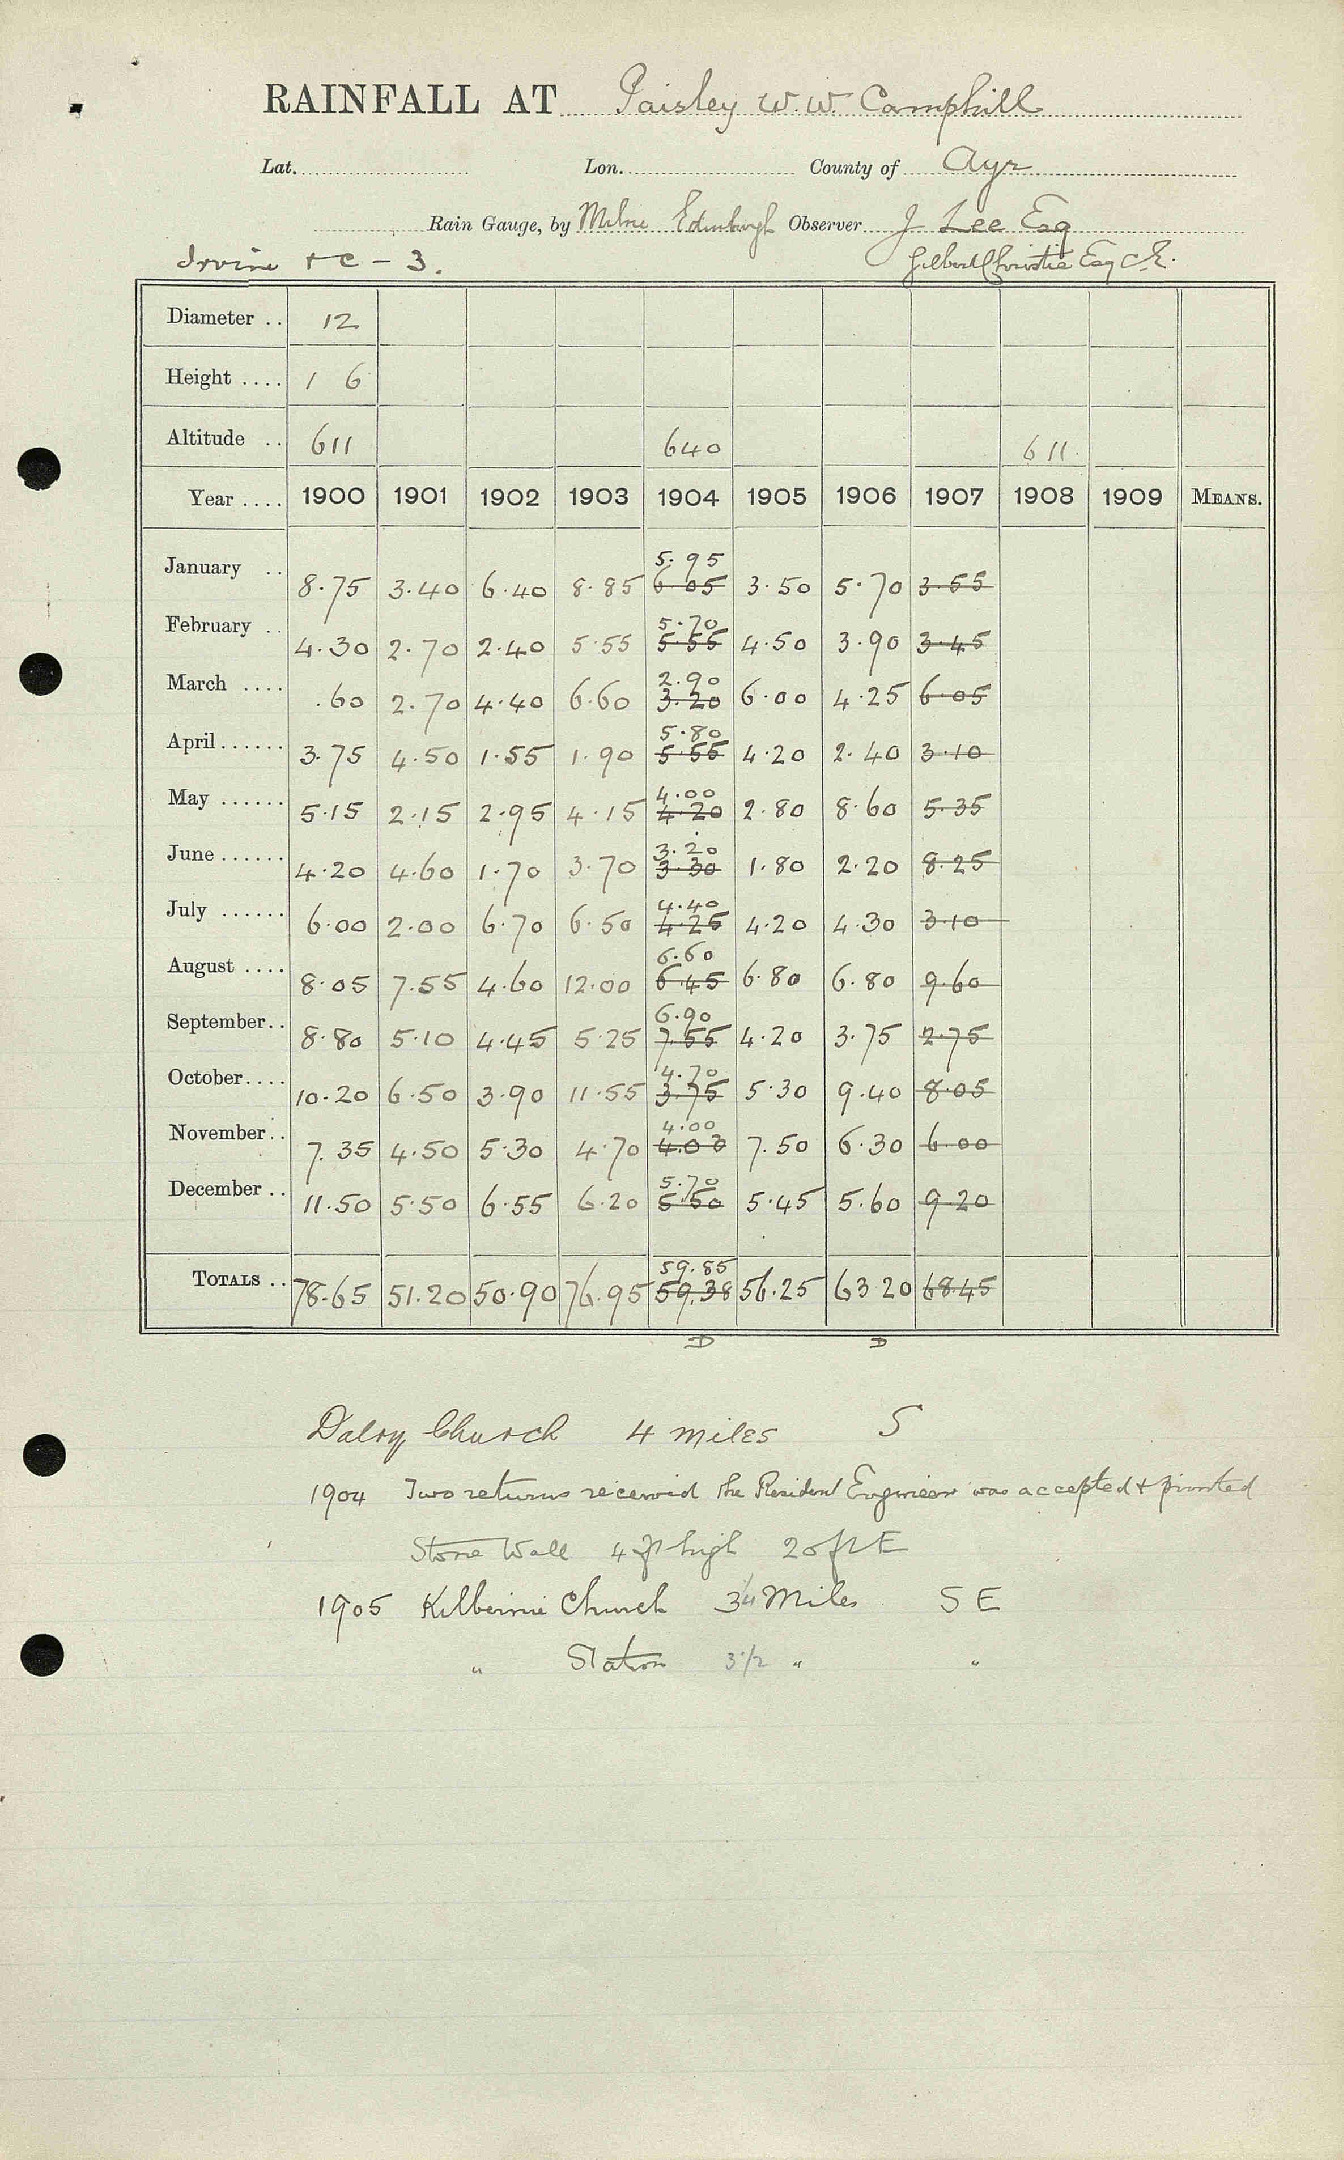 RAINFALL AT Paisley W.W. Camphill
Lat. Lon. County of Ayr
Rain Gauge, by Milne Edinburgh Observer J Lee Esq
Irvine &c - 3. Gilbert Christie Esq C.E.
Diameter .. 12
Height .... 1 6
Altitude .. 611 640 611
Year .... 1900 1901 1902 1903 1904 1905 1906 1907 1908 1909 MEANS.
5.95
January .. 8.75 3.40 6.40 8.85 6.05 3.50 5.70 3.55
5.70
February .. 4.30 2.70 2.40 5.55 5.55 4.50 3.90 3.45
2.90
March .... .60 2.70 4.40 6.60 3.20 6.00 4.25 6.05
5.80
April ...... 3.75 4.50 1.55 1.90 5.55 4.20 2.40 3.10
4.00
May ...... 5.15 2.15 2.95 4.15 4.20 2.80 8.60 5.35
3.20
June ...... 4.20 4.60 1.70 3.70 3.30 1.80 2.20 8.25
4.40
July ...... 6.00 2.00 6.70 6.50 4.25 4.20 4.30 3.10
6.60
August .... 8.05 7.55 4.60 12.00 6.45 6.80 6.80 9.60
6.90
September.. 8.80 5.10 4.45 5.25 7.55 4.20 3.75 2.75
4.70
October.... 10.20 6.50 3.90 11.55 3.75 5.30 9.40 8.05
4.00
November.. 7.35 4.50 5.30 4.70 4.03 7.50 6.30 6.00
5.70
December .. 11.50 5.50 6.55 6.20 5.50 5.45 5.60 9.20
59.85
TOTALS .. 78.65 51.20 50.90 76.95 59.38 56.25 63.20 68.45
D D
Dalry Church 4 miles S
1904 Two returns received the Resident Engineer was accepted & printed
Stone Wall 4 ft high 20 ft E
1905 Kilbirnie Church 3 1/4 Miles S E
" Station 3 1/2 " "